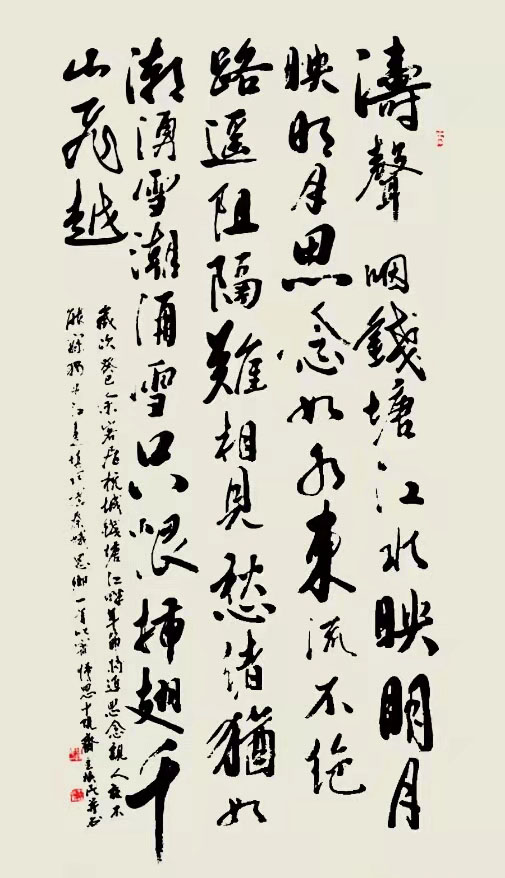 濤聲咽錢塘江水映明月
映明月思念如水東流不絕
路遥阻隔難相見愁緒猶如
潮湧雪潮涌雪只恨插翅千
山飛越
歲次癸巳余客居杭城錢塘江畔年節將近思念親人夜不
能寐獨步江邊填詞憶秦娥思鄉一首以寄情思